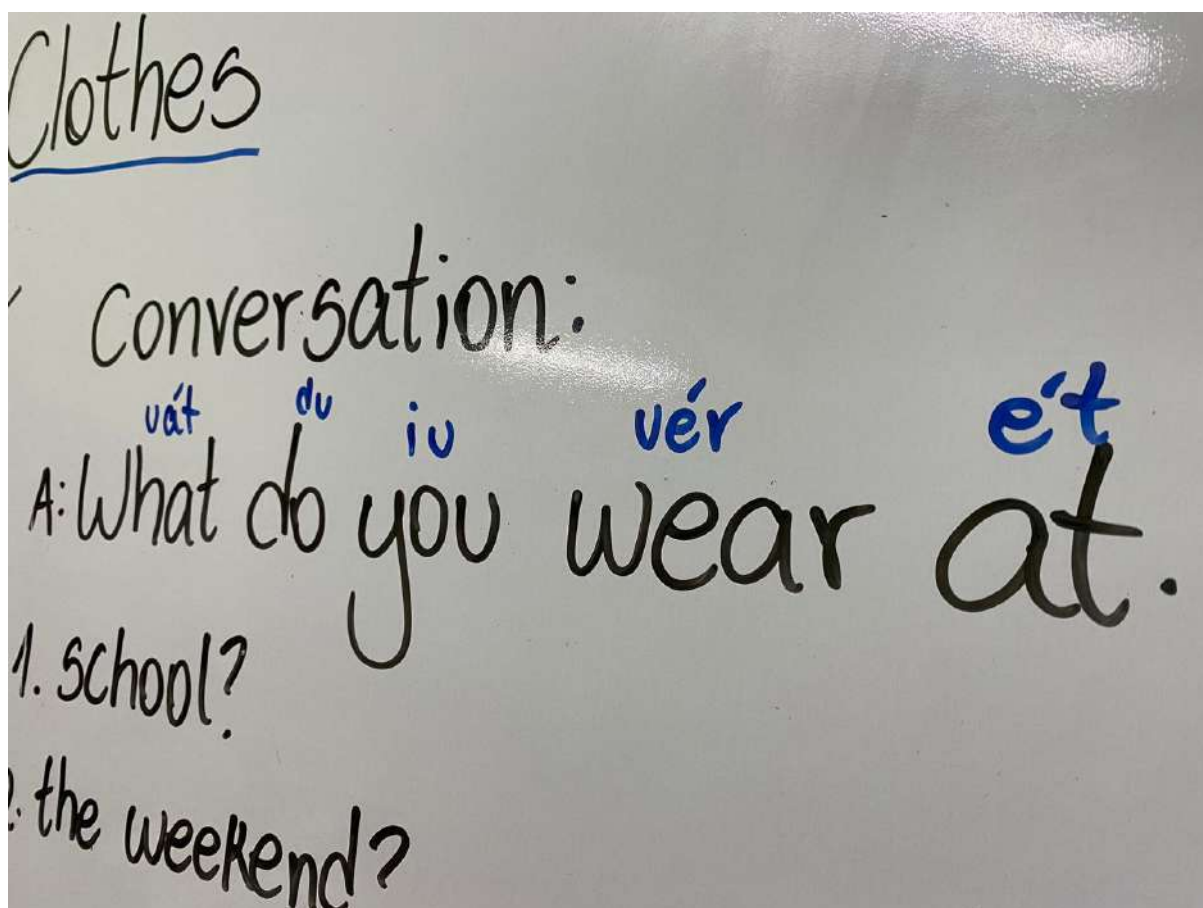 Clothes
Conversation:
vát du iu vér ét
A: What do you wear at.
1. school?
2. the weekend?